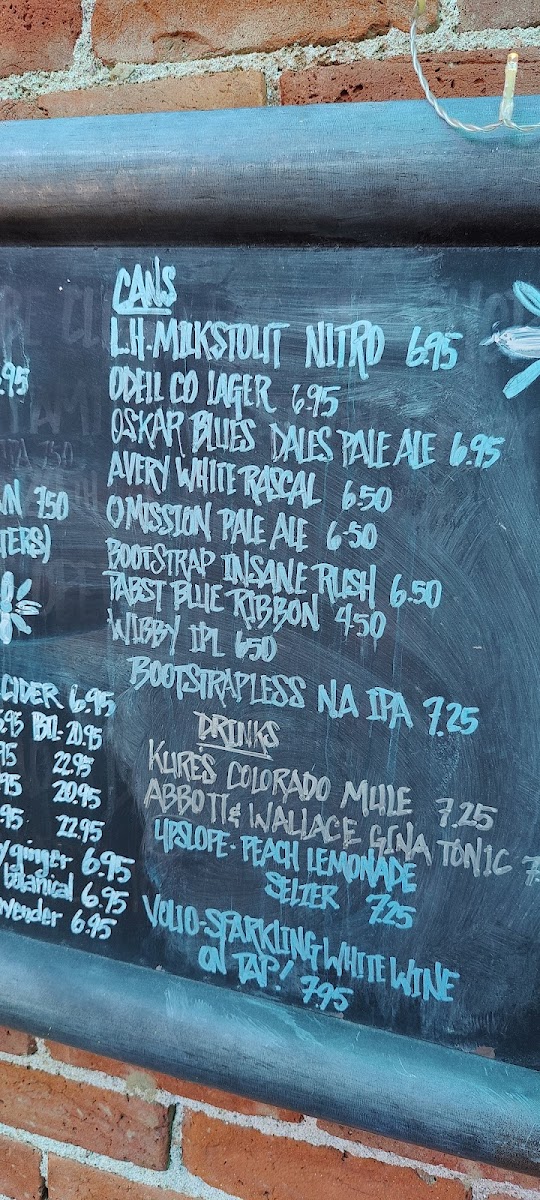 CANS
L.H. MILKSTOUT NITRO 6.95
ODELL CO LAGER 6.95
OSKAR BLUES DALES PALE ALE 6.95
AVERY WHITE RASCAL 6.50
OMISSION PALE ALE 6.50
BOOTSTRAP INSANE RUSH 6.50
PABST BLUE RIBBON 4.50
WIBBY IPL 6.50
BOOTSTRAPLESS NA IPA 7.25
DRINKS
KURE'S COLORADO MULE 7.25
ABBOTT & WALLACE GINA TONIC
UPSLOPE- PEACH LEMONADE
SELTER 7.25
VOLIO-SPARKLING WHITE WINE
ON TAP! 7.95
.95
750
TERS)
CIDER 6.95
.95 BTL- 20.95
.95 22.95
.95 20.95
.95 22.95
ginger 6.95
botanical 6.95
6.95